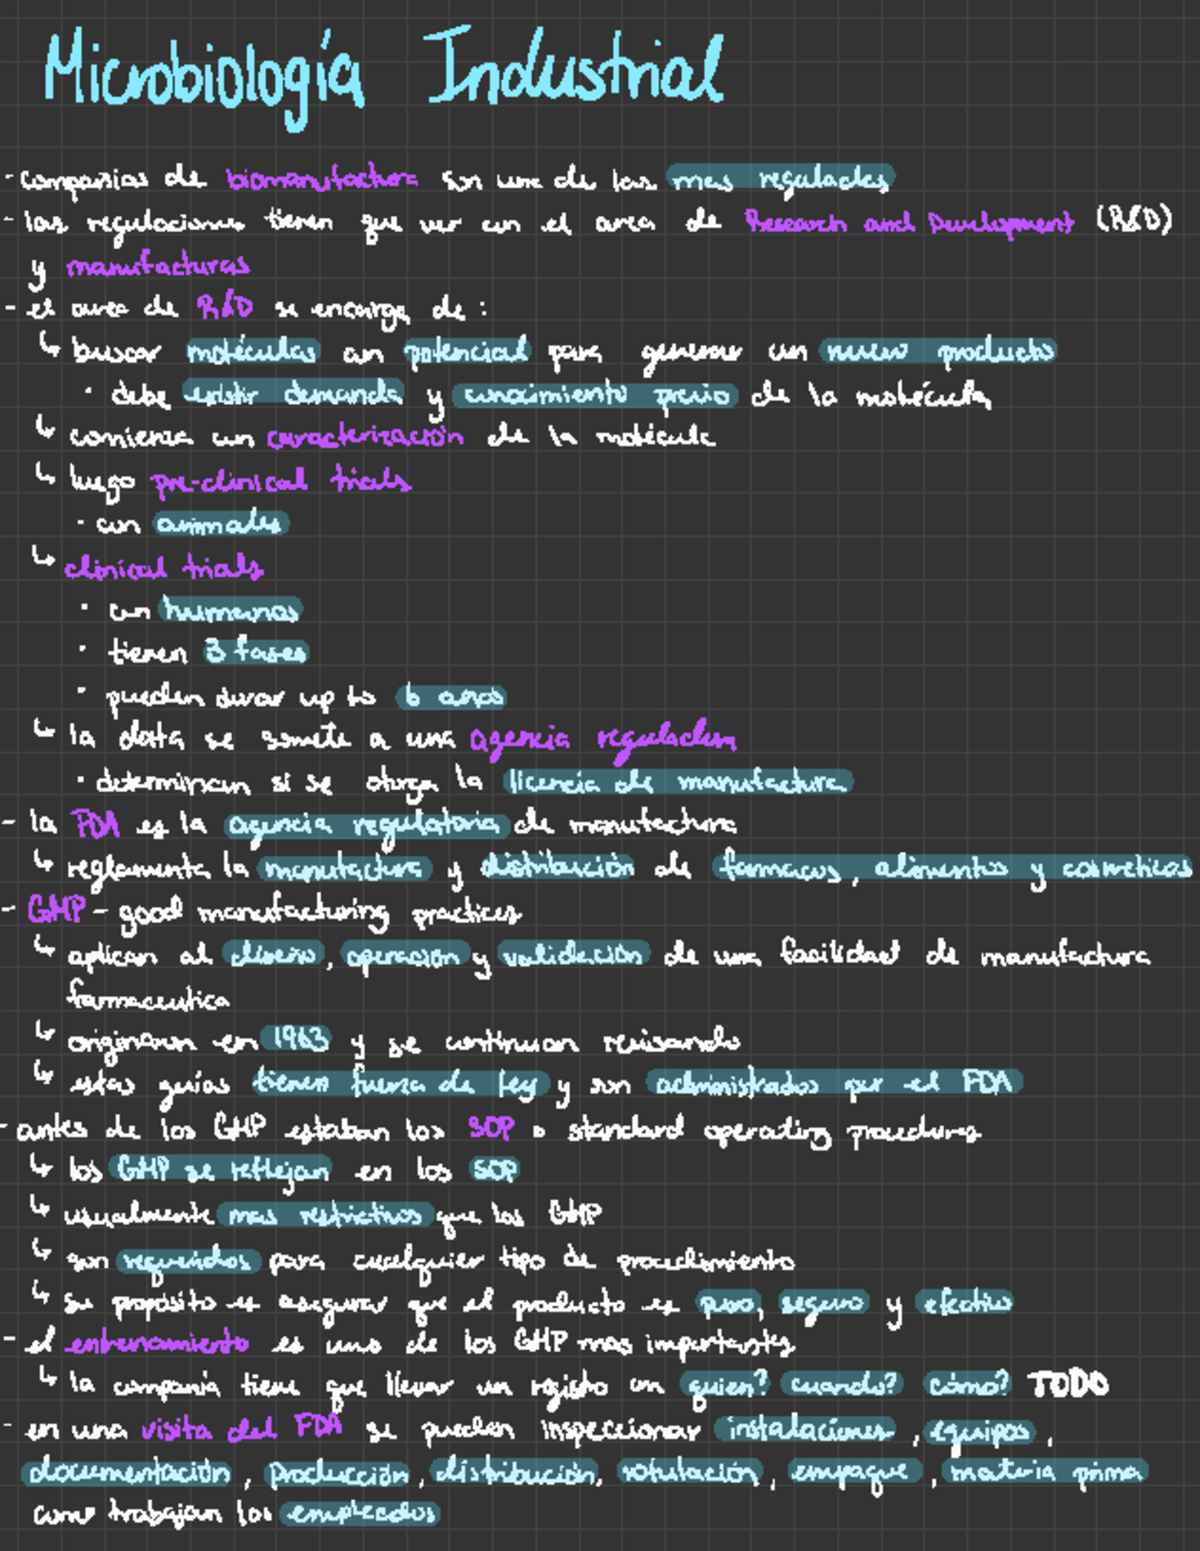 Microbiología Industrial
- companias de biomanufactura son una de las mas reguladas
- las regulaciones tienen que ver con el area de Research and Development (R&D)
y manufacturas
- el area de R&D se encarga de :
↳ buscar moléculas con potencial para generar un nuevo producto
· debe existir demanda y conocimiento previo de la molécula
↳ comienza con caracterización de la molécula
↳ luego pre-clinical trials
· con animales
↳ clinical trials
· con humanos
· tienen 3 fases
· pueden durar up to 6 anos
↳ la data se somete a una agencia reguladora
· determinan si se otorga la licencia de manufactura
- la FDA es la agencia regulatoria de manufactura
↳ reglamenta la manufactura y distribución de farmacos, alimentos y cosmeticos
- GMP - good manufacturing practices
↳ aplican al diseno, operacion y validación de una facilidad de manufactura
farmaceutica
↳ originaron en 1963 y se continuan revisando
↳ estas guías tienen fuerza de ley y son administrados por el FDA
- antes de los GMP estaban los SOP o standard operating procedures
↳ los GMP se reflejan en los SOP
↳ usualmente mas restrictivos que los GMP
↳ son requeridos para cualquier tipo de procedimiento
↳ su proposito es asegurar que el producto es puro, seguro y efectivo
- el entrenamiento es uno de los GMP mas importantes
↳ la compania tiene que llevar un registo con quien? cuando? cómo? TODO
- en una visita del FDA se pueden inspeccionar instalaciones, equipos,
documentación, producción, distribución, rotulación, empaque, materia prima
como trabajan los empleados